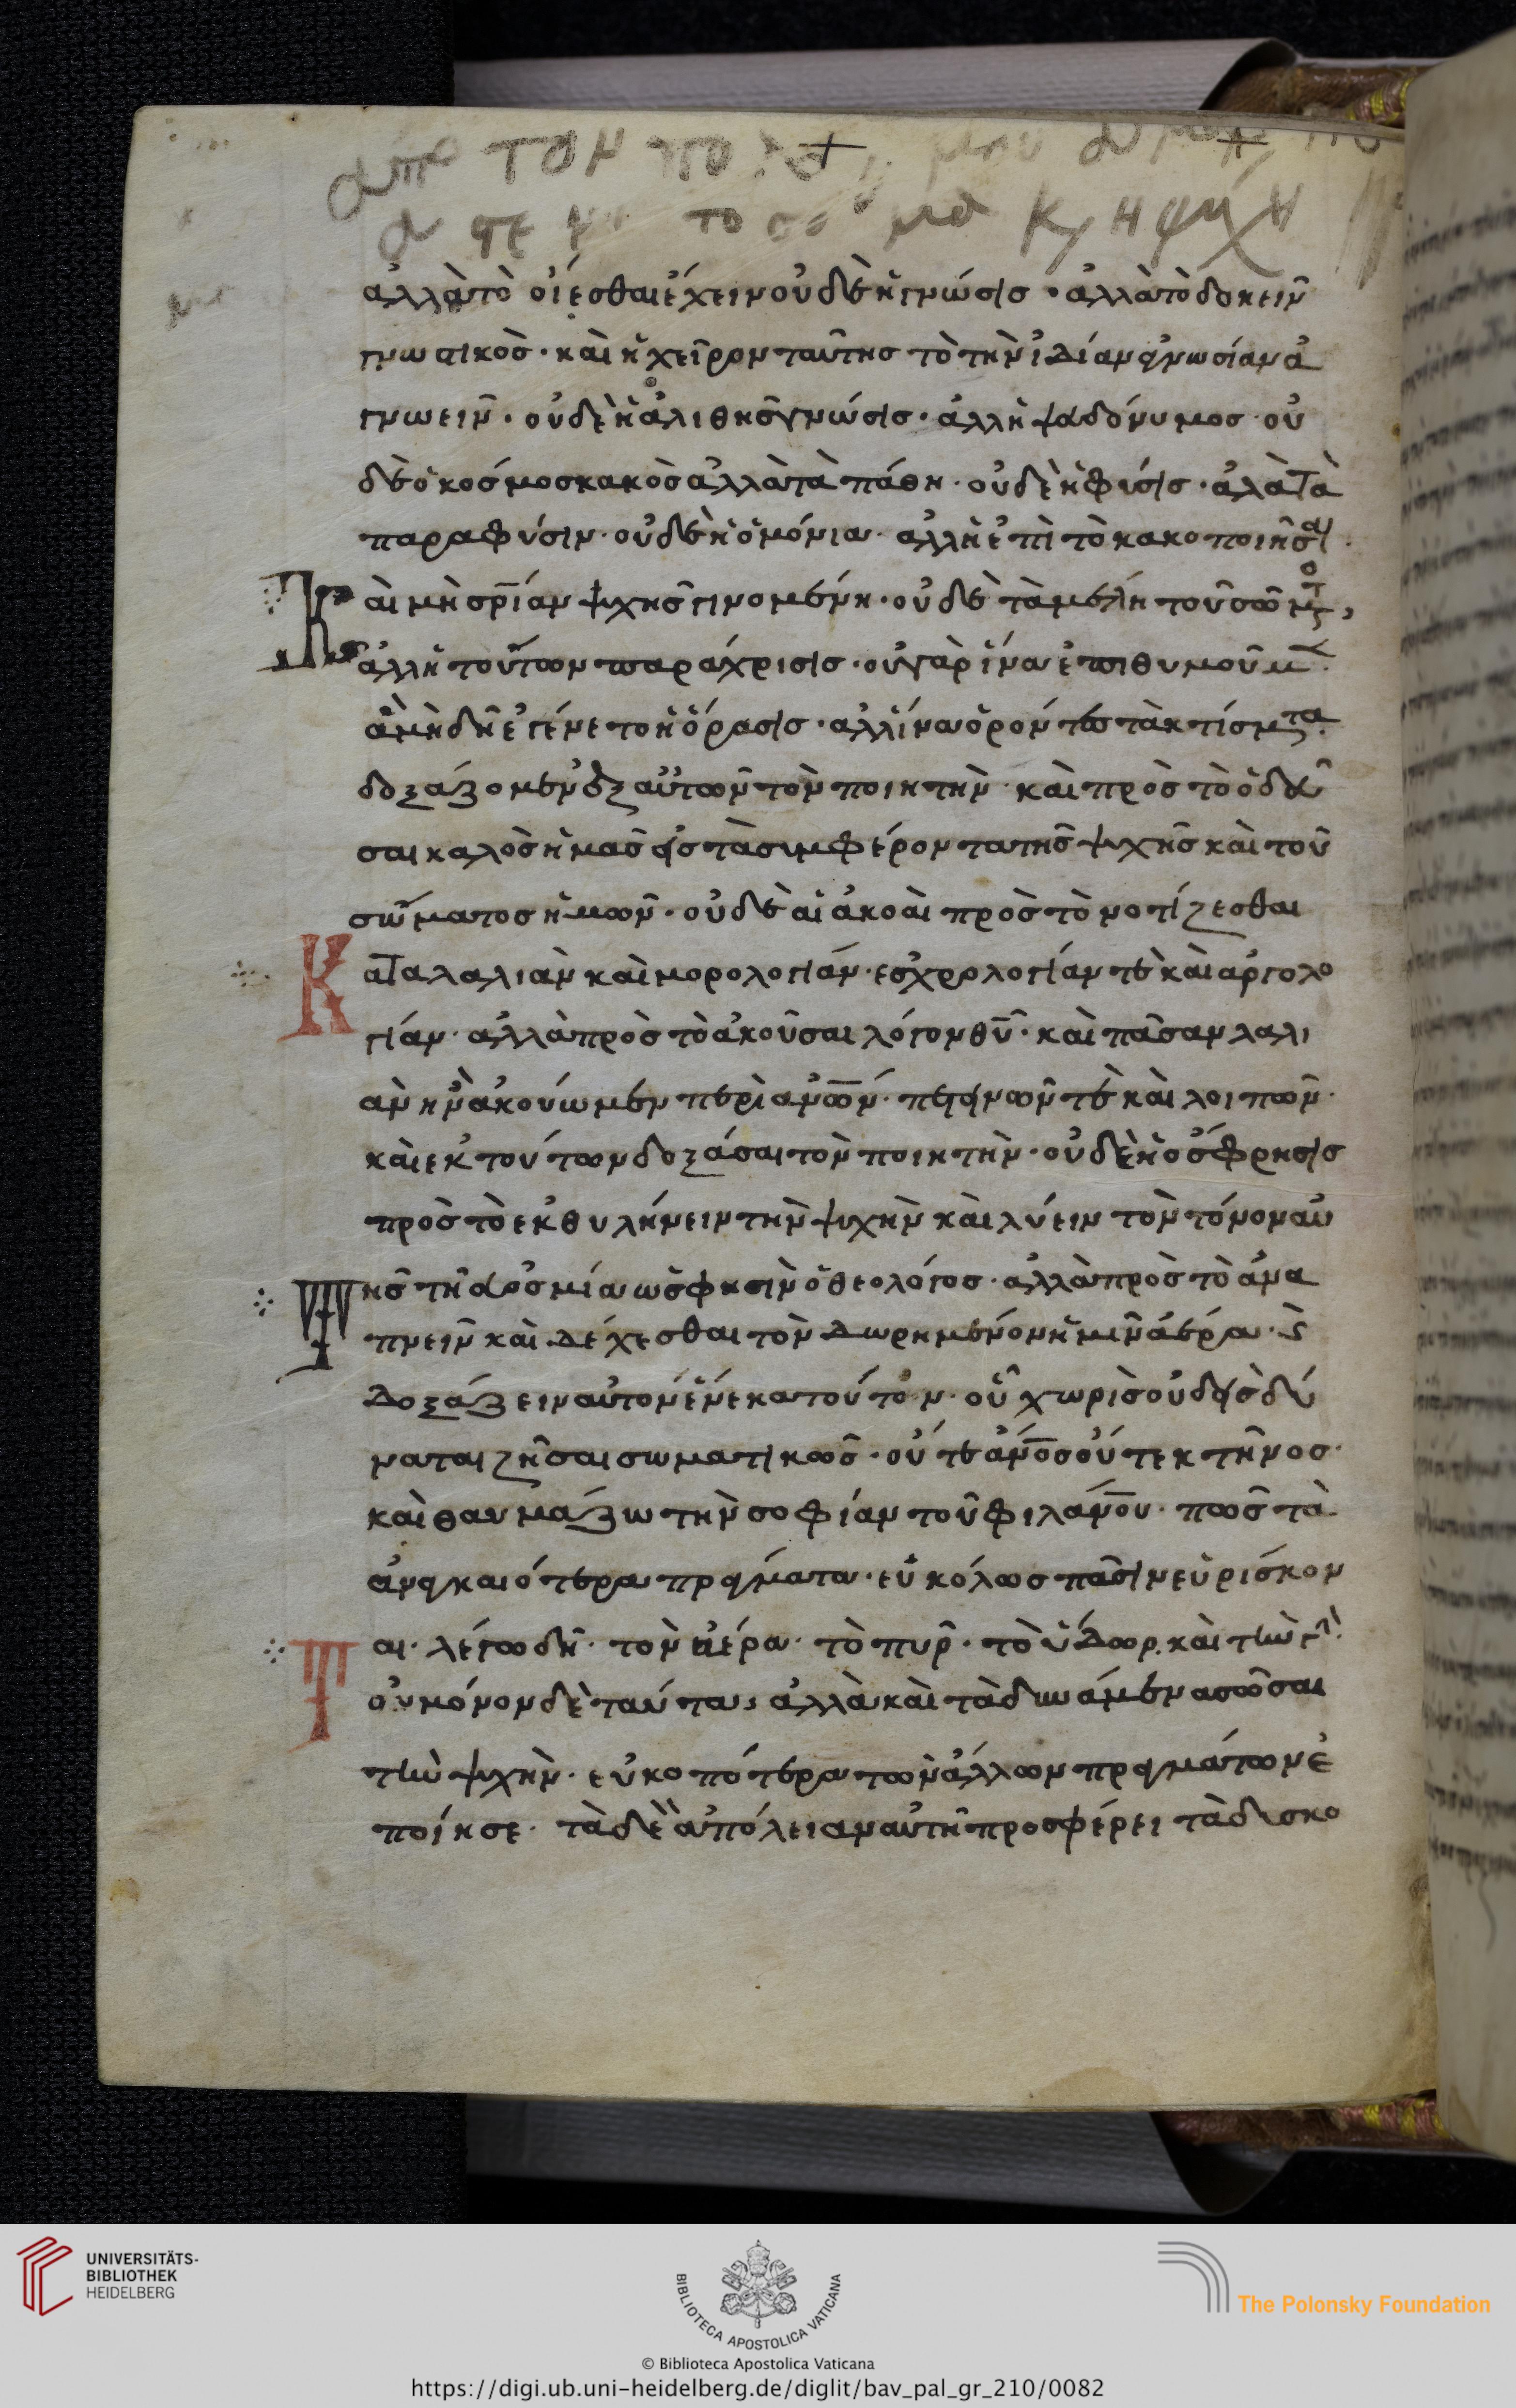 ἀλλὰ τὸ οἴεσθαι ἔχειν οὐδὲ ἡ γνώσις · ἀλλὰ τὸ δοκεῖν
γνωστικὸς · καὶ ἡ χεῖρον ταύτης τὸ τὴν ἰδίαν ἀγνωσίαν ἀ
γνωεῖν · οὐδὲ ἡ ἀλιθηὴς γνώσις · ἀλλ ἡ ψευδόνυμος · οὐ
δὲ ὁ κοσμος κακὸς ἀλλὰ τὰ πάθη · οὐδὲ ἡ φύσις · ἀλὰ τὰ
παραφύσιν · οὐδὲ ἡ ὁμόνια · ἀλλ ἡ ἐπὶ τὸ κακοποιῆσαι ·
καὶ μὴ σρίαν ψυχῆς γινομένη · οὐδὲ τὰ μέλη τοῦ σώμτος,
ἀλλ ἡ τούτων παράχρισις · οὐ γὰρ ἵνα ἐπιθυμοῦμεν
ἃ μὴ δῆ ἐγένετο ἡ ὅρασις · ἀλλ ἵνα ὁρόντες τὰ κτίσμτα ·
δοξάζομεν δι αὐτῶν τὸν ποιητὴν · καὶ πρὸς τὸ ὁδεῦ
σαι καλὸς ἡμᾶς εἰς τὰ σιμφέροντα τῆς ψυχῆς καὶ τοῦ
σώματος ἡμῶν · οὐδὲ αἱ ἀκοαὶ πρὸς τὸ νοτίζεσθαι
καταλαλιὰν καὶ μορολογίαν · εσχρολογίαν τὲ καὶ αργολο
γίαν · ἀλλὰ πρὸς τὸ ἀκοῦσαι λόγον θυ · καὶ πᾶσαν λαλι
ὰν ἣν ἀκούωμεν περὶ ανων · πετεινῶν τὲ καὶ λοιπῶν ·
καὶ ἐκ τούτων δοξάσαι τὸν ποιητὴν · οὐδὲ ἡ ὄσφρησις
πρὸς τὸ ἐκθυλήνειν τὴν ψυχὴν καὶ λύειν τὸν τόνον αὐ
τῆς τῆ εὐοσμία ὡς φησὶν ὁ θεολόγος · ἀλλὰ πρὸς τὸ ἀνα
πνεῖν καὶ δέχεσθαι τὸν δωρημένον ἡμῖν ἀέρα · καὶ
δοξάζειν αὐτὸν ἕνεκα τούτον · οὗ χωρὶς οὐδεὶς δύ
ναται ζῆσαι σωματικῶς · οὔτε ανος οὔτε κτῆνος ·
καὶ θαυμάζω τὴν σοφίαν τοῦ φιλανου · πῶς τὰ
ἀναγκαιότερα πράγματα · εὐκόλως πᾶσιν εὑρίσκον
ται · λέγω δῆ · τὸν ἀέρα · τὸ πῦρ · τὸ ὕδωρ · καὶ τὴν γὴν ·
οὐ μόνον δὲ ταύτα, ἀλλὰ καὶ τὰ δυνάμενα σῶσαι
τὴν ψυχὴν · εὐκοπότερα τῶν ἄλλων πραγμάτων ἐ
ποίησε · τὰ δὲ ἀπόλειαν αὐτῆ προσφέρει τὰ δισκο
UNIVERSITÄTS-
BIBLIOTHEK
HEIDELBERG
BIBLIOTECA APOSTOLICA VATICANA
The Polonsky Foundation
© Biblioteca Apostolica Vaticana
https://digi.ub.uni-heidelberg.de/diglit/bav_pal_gr_210/0082